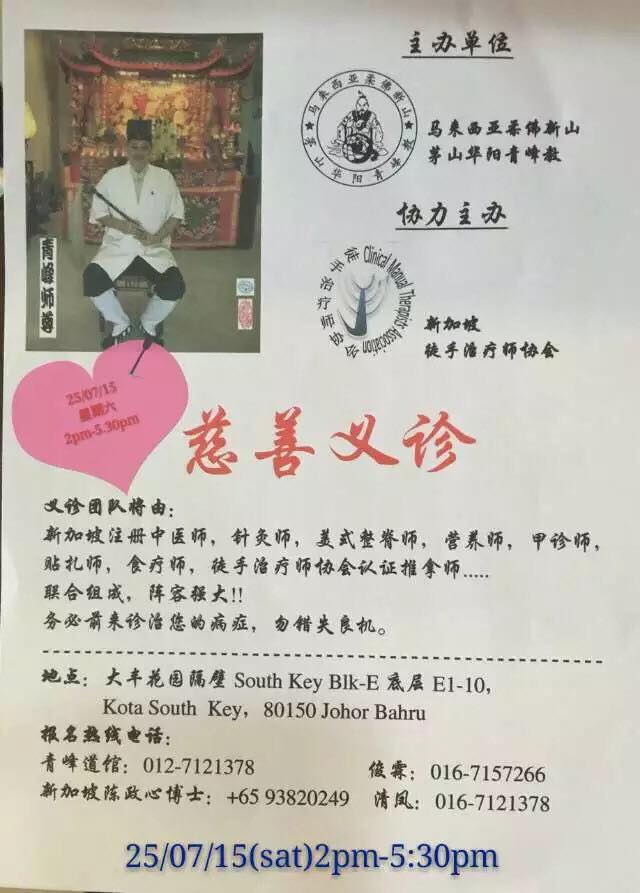 主办单位
马来西亚柔佛新山
茅山华阳青峰教
马来西亚柔佛新山
茅山华阳青峰教
协力主办
Clinical Manual Therapists Association
徒手治疗师协会
新加坡
徒手治疗师协会
青峰师尊
25/07/15
星期六
2pm-5.30pm
慈善义诊
义诊团队将由：
新加坡注册中医师，针灸师，美式整脊师，营养师，甲诊师，
贴扎师，食疗师，徒手治疗师协会认证推拿师.....
联合组成，阵容强大!!
务必前来诊治您的病症，勿错失良机。
地点：大丰花园隔壁 South Key Blk-E 底层 E1-10，
Kota South Key，80150 Johor Bahru
报名热线电话：
青峰道馆：012-7121378 俊霖：016-7157266
新加坡陈政心博士：+65 93820249 清凤：016-7121378
25/07/15(sat)2pm-5:30pm